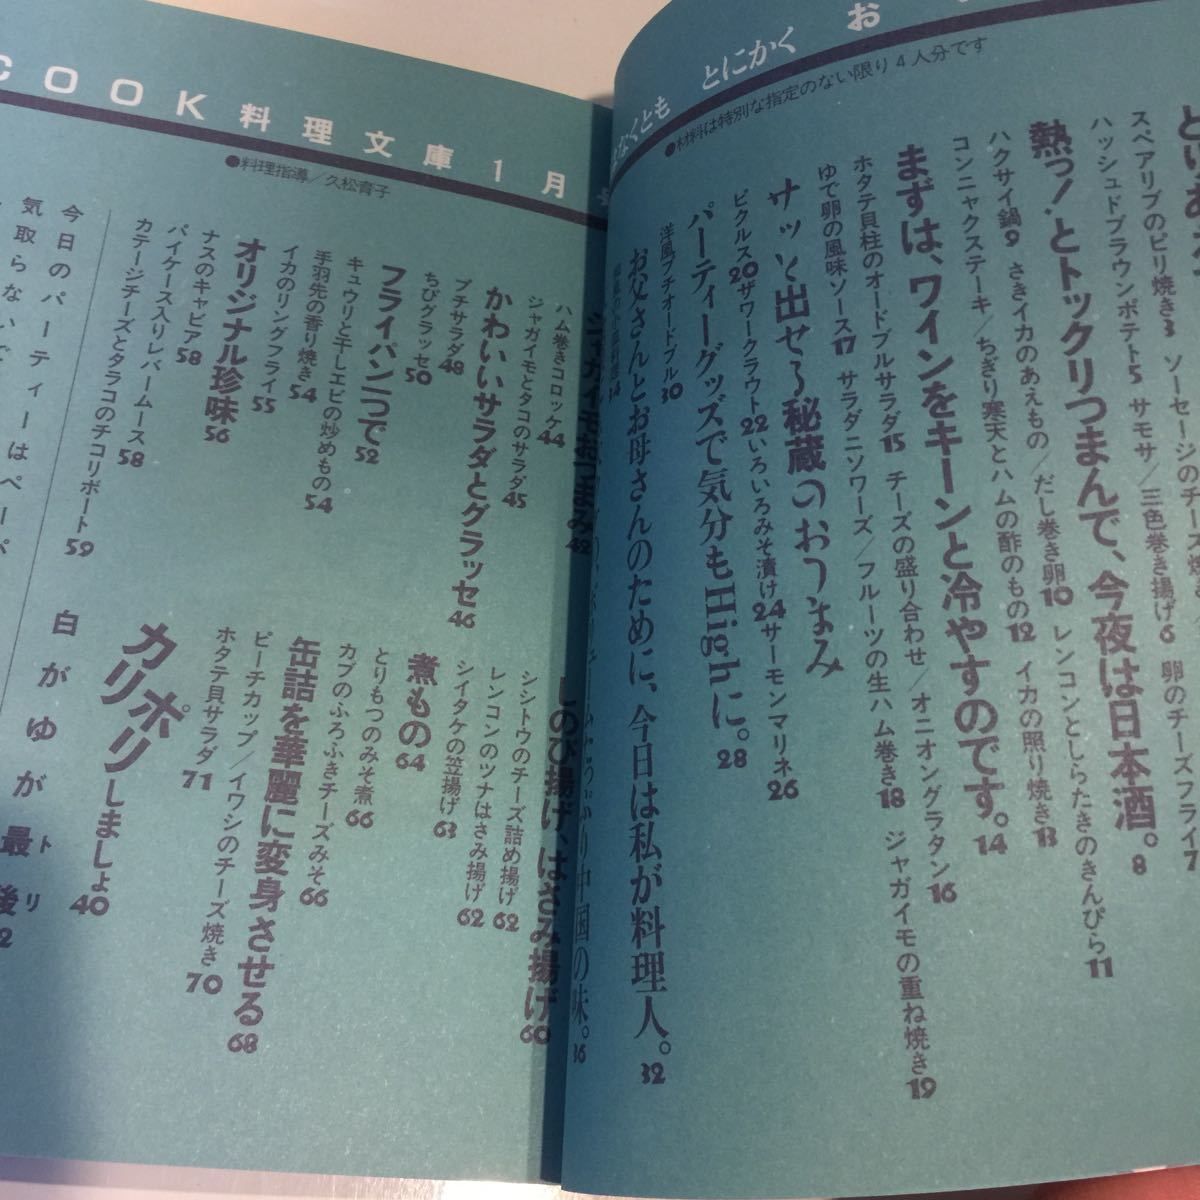 なくとも とにかく お
●材料は特別な指定のない限り4人分です
スペアリブのピリ焼き3 ソーセージのチーズ焼
ハッシュドブラウンポテト5 サモサ/三色巻き揚げ6 卵のチーズフライ7
熱っ!とトックリつまんで、今夜は日本酒。8
ハクサイ鍋9 さきイカのあえもの/だし巻き卵10 レンコンとしらたきのきんぴら11
コンニャクステーキ/ちぎり寒天とハムの酢のもの12 イカの照り焼き13
まずは、ワインをキーンと冷やすのです。14
ホタテ貝柱のオードブルサラダ15 チーズの盛り合わせ/オニオングラタン16
ゆで卵の風味ソース17 サラダニソワーズ/フルーツの生ハム巻き18 ジャガイモの重ね焼き19
サッと出せる秘蔵のおつまみ
ピクルス20 ザワークラウト22 いろいろみそ漬け24 サーモンマリネ26
パーティーグッズで気分もHighに。28
洋風プチオードブル30
お父さんとお母さんのために、今日は私が料理人。32
中国の味。36
COOK料理文庫1月
●料理指導/久松育子
ジャガイモおつまみ42
ハム巻きコロッケ44
ジャガイモとタコのサラダ45
かわいいサラダとグラッセ46
プチサラダ48
ちびグラッセ50
フライパン一つで52
キュウリと干しエビの炒めもの54
手羽先の香り焼き54
イカのリングフライ55
オリジナル珍味56
ナスのキャビア58
パイケース入りレバームース58
カテージチーズとタラコのチコリボート59
しのび揚げ、はさみ揚げ60
シシトウのチーズ詰め揚げ62
レンコンのツナはさみ揚げ62
シイタケの笠揚げ63
煮もの64
とりもつのみそ煮66
カブのふろふきチーズみそ66
缶詰を華麗に変身させる68
ピーチカップ/イワシのチーズ焼き70
ホタテ貝サラダ71
カリポリしましょ40
今日のパーティーはペーパ
気取らないで
白がゆが最後
トリ